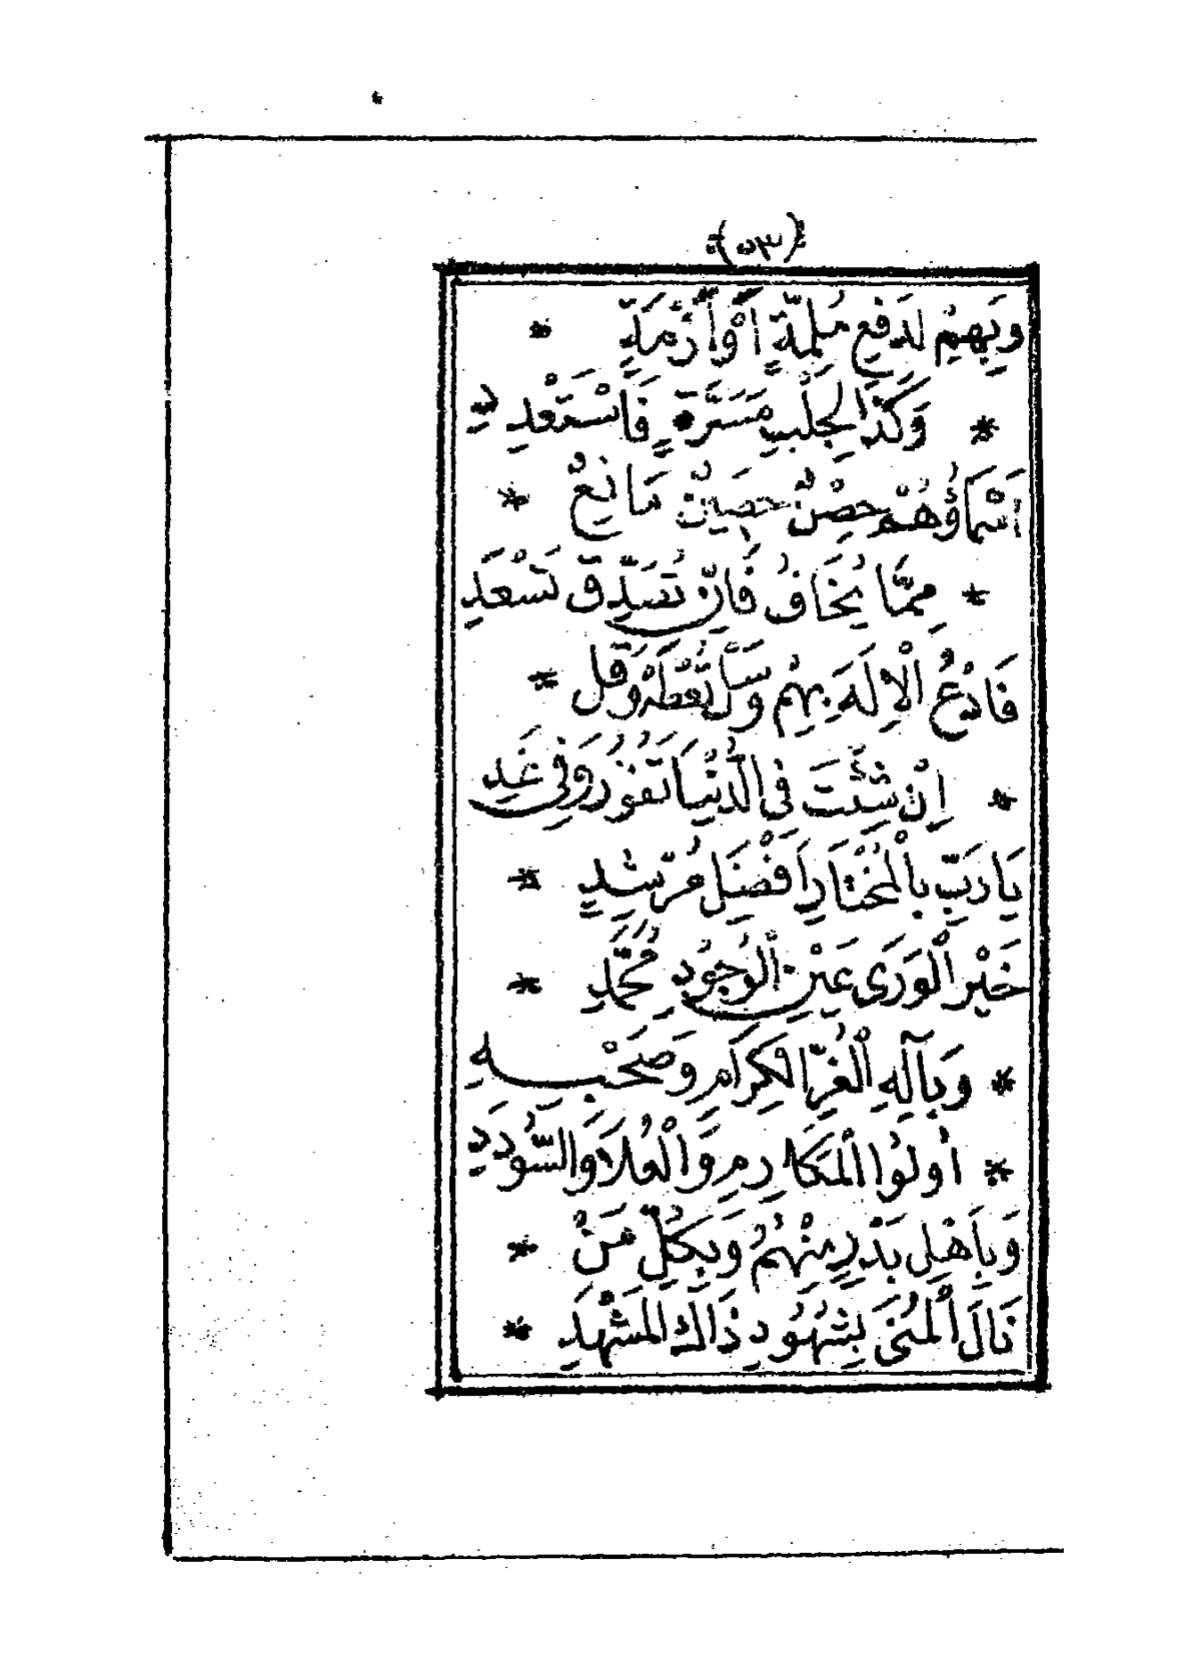 (٥٣)
وَبِهِمْ لِدَفْعِ مُلِمَّةٍ أَوْ أَزْمَةٍ *
* وَكَذَا لِجَلْبِ مَسَرَّةٍ فَاسْتَرْفِدِ
اَسْمَاؤُهُمْ حِصْنٌ حَصِيْنٌ مَانِعٌ *
* مِمَّا يُخَافُ فَإِنْ تُصَدِّقْ تَسْعَدِ
فَادْعُ الْاِلَهَ بِهِمْ وَسَلْ تُعْطَهْ وَقُلْ *
* اِنْ شِئْتَ فِى الدُّنْيَا تَفُوْزُ وَفِى غَدِ
يَا رَبِّ بِالْمُخْتَارِ اَفْضَلِ مُرْشِدٍ *
خَيْرِ الْوَرَى عَيْنِ الْوُجُوْدِ مُحَمَّدِ *
* وَبِآلِهِ الْغُرِّ الْكِرَامِ وَصَحْبِهِ
* أُولُوا الْمَكَارِمِ وَالْعُلَا وَالسُّودَدِ
وَبِاَهْلِ بَدْرٍ مِنْهُمُ وَبِكُلِّ مَنْ *
نَالَ الْمُنَى بِشُهُوْدِ ذَاكَ الْمَشْهَدِ *